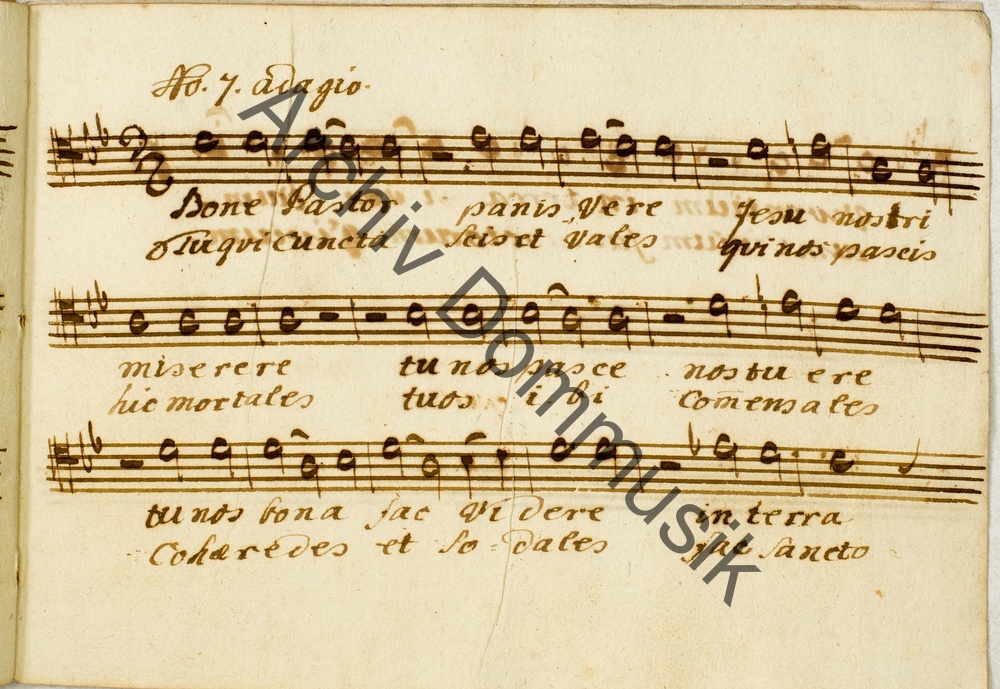 No. 7. adagio.
Bone Pastor panis vere Jesu nostri
Tu qui cuncta scis et vales qui nos pascis
miserere tu nos pasce nos tu ere
hic mortales tuos i bi Comensales
tu nos bona fac Vi dere in terra
Cohæredes et so - dales fac sancto
Archiv Dommusik